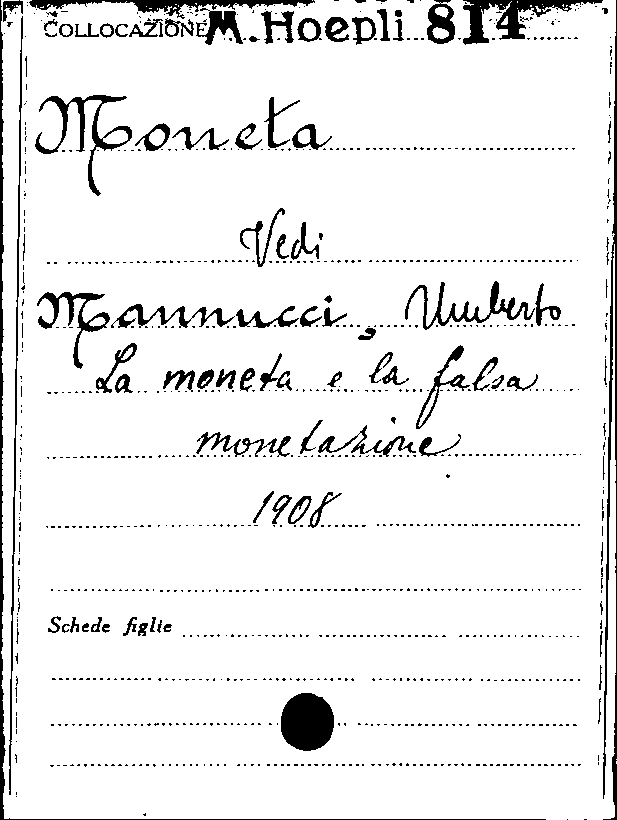 COLLOCAZIONE M. Hoepli 814
Moneta
Vedi
Mannucci, Umberto
La moneta e la falsa
monetazione
1908
Schede figlie